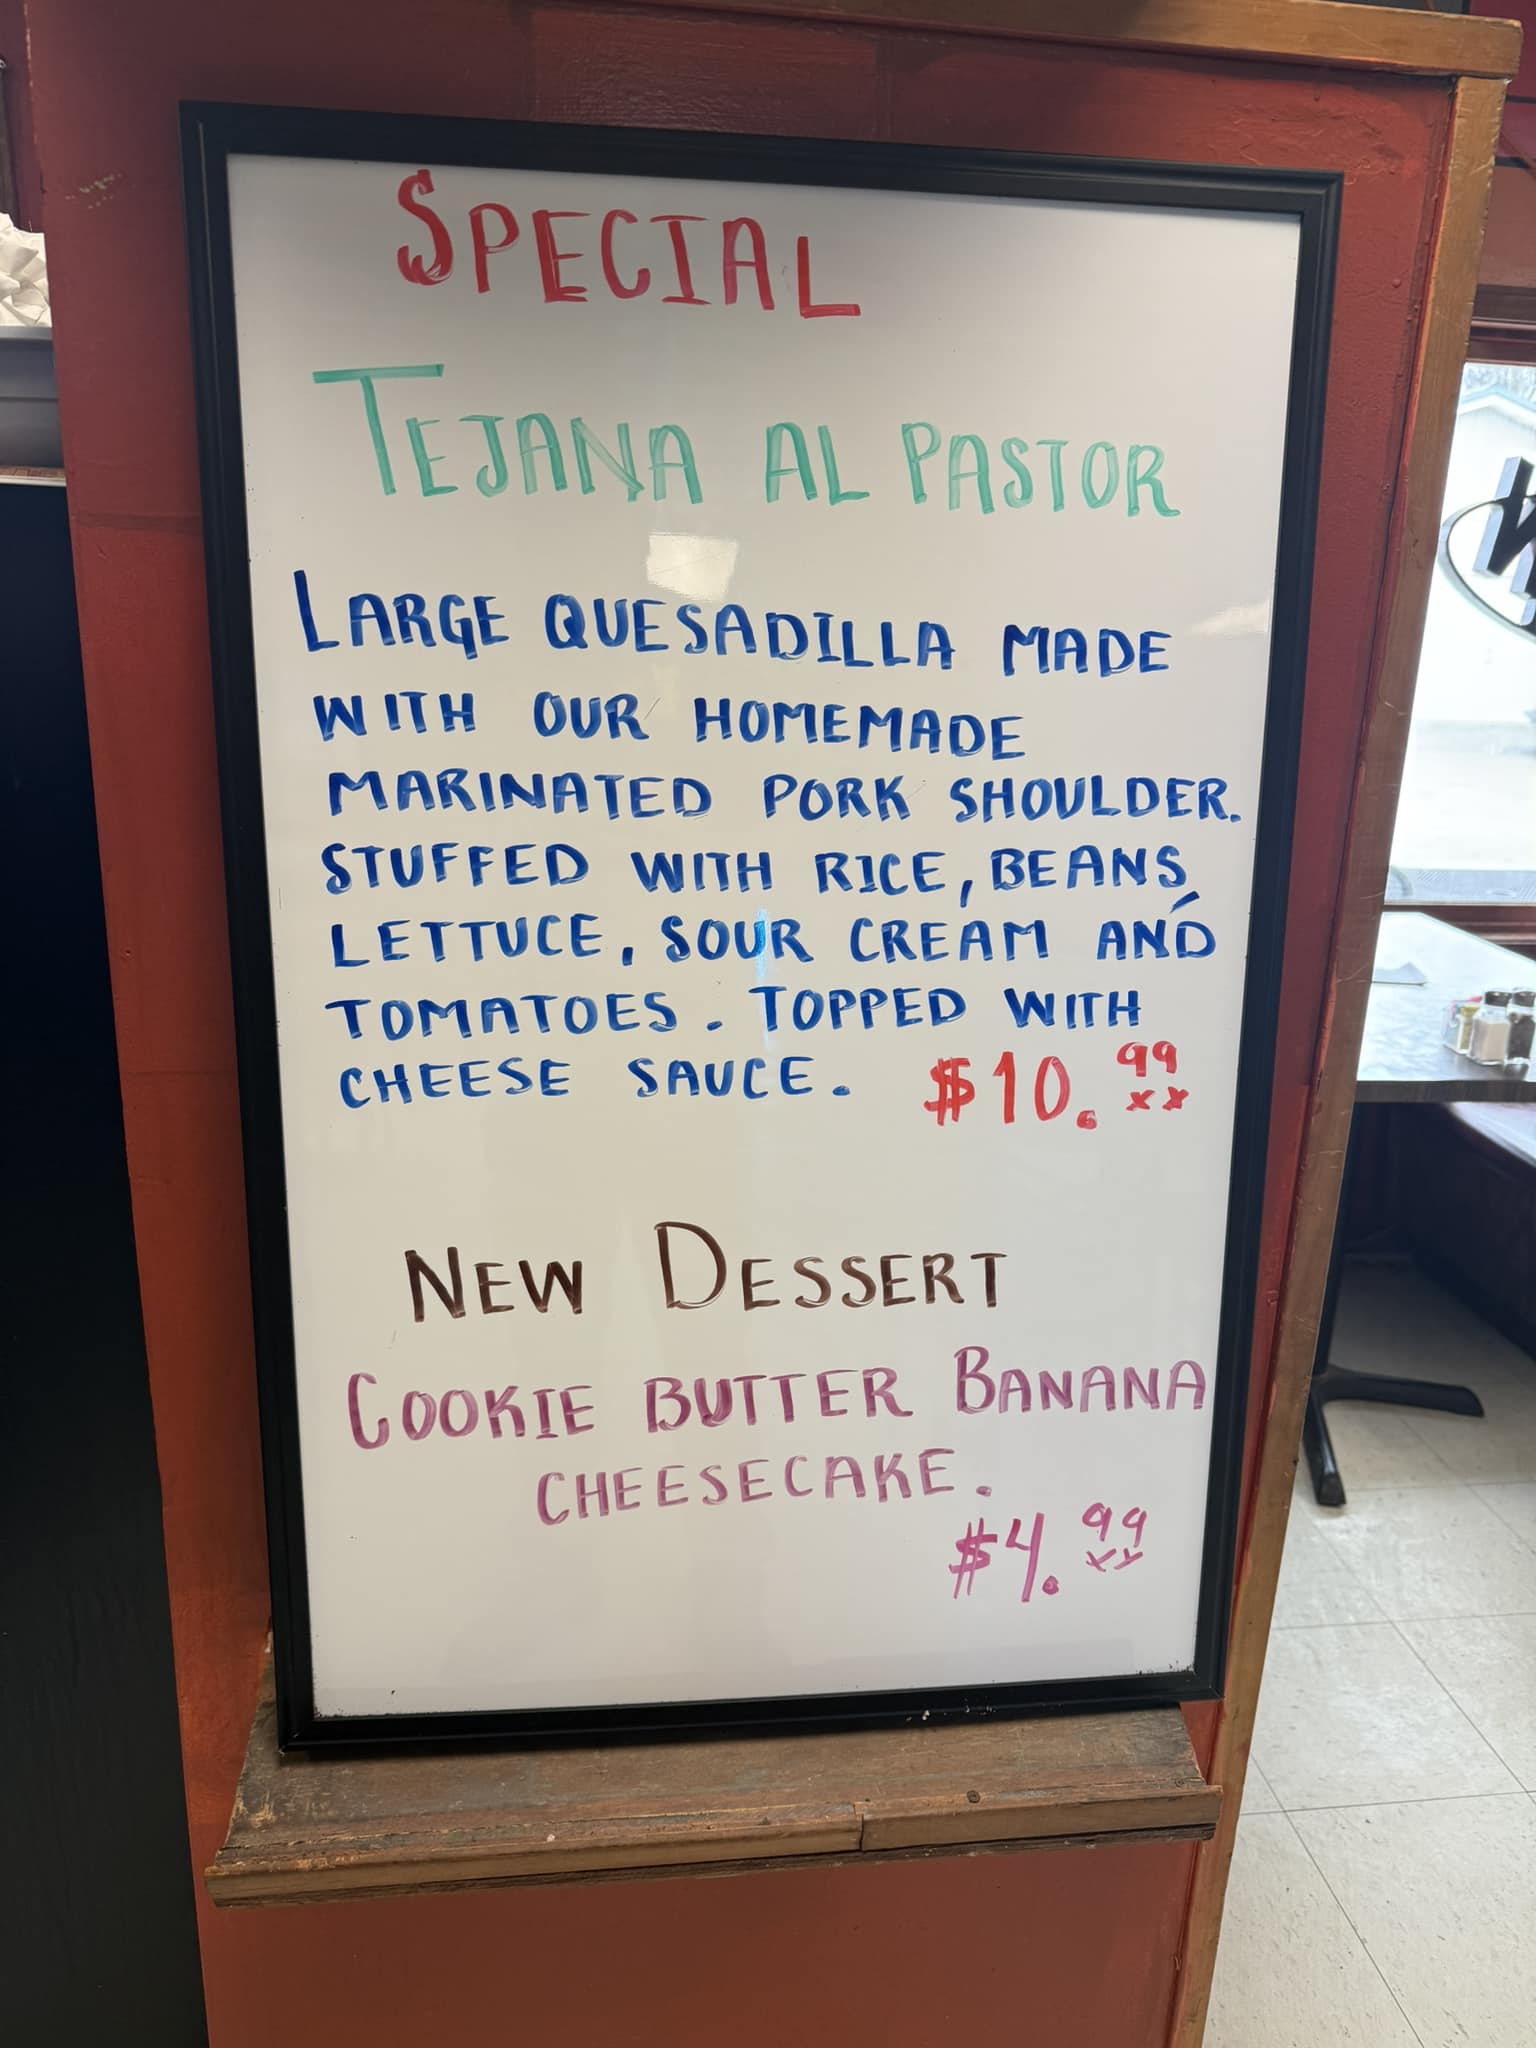 SPECIAL
TEJANA AL PASTOR
LARGE QUESADILLA MADE
WITH OUR HOMEMADE
MARINATED PORK SHOULDER.
STUFFED WITH RICE, BEANS,
LETTUCE, SOUR CREAM AND
TOMATOES. TOPPED WITH
CHEESE SAUCE. $10.99
NEW DESSERT
COOKIE BUTTER BANANA
CHEESECAKE.
$4.99